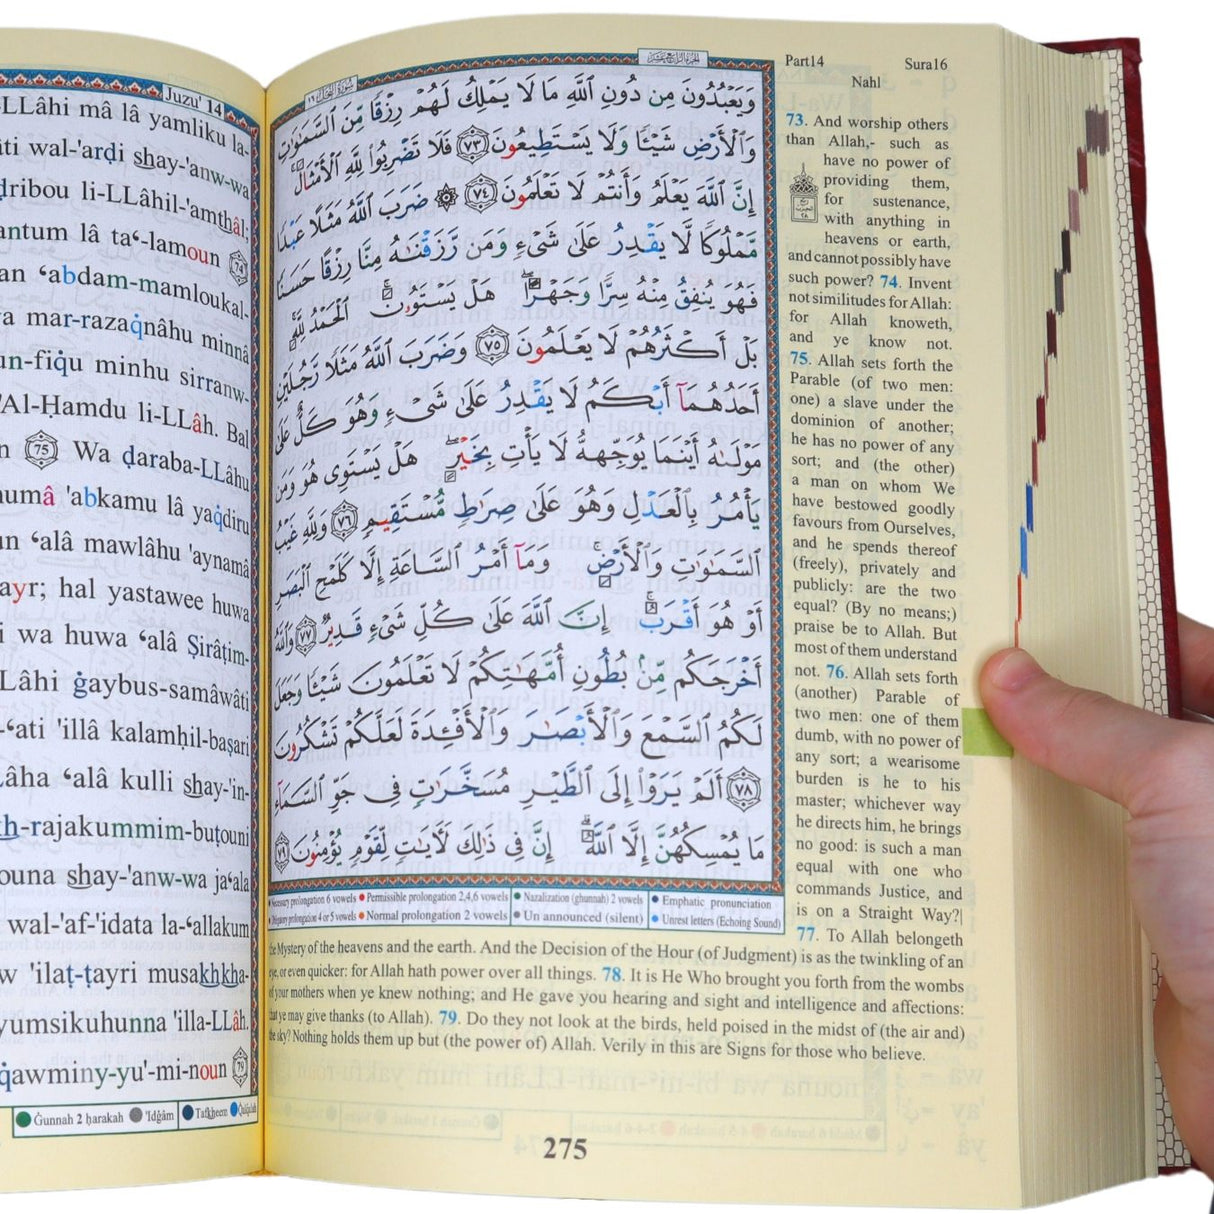 Juzu' 14
-LLâhi mâ lâ yamliku la-
ti wal-'arḍi shay-'anw-wa
ḍribou li-LLâhil-'amthâl;
antum lâ ta‘-lamoun 74
an ‘abdam-mamloukal-
a mar-razaq̇nâhu minnâ
un-fiq̇u minhu sirranw-
'Al-Ḥamdu li-LLâh. Bal
n 75 Wa ḍaraba-LLâhu
umâ 'abkamu lâ yaq̇diru
un ‘alâ mawlâhu 'aynamâ
ayr; hal yastawee huwa
i wa huwa ‘alâ Ṣirâṭim-
LLâhi ġaybus-samâwâti
-‘ati 'illâ kalamḥil-baṣari
Lâha ‘alâ kulli shay-'in-
kh-rajakummim-buṭouni
ouna shay-'anw-wa ja‘ala
wal-'af-'idata la-‘allakum
w 'ilaṭ-ṭayri musakhkha-
yumsikuhunna 'illa-LLâh.
q̇awminy-yu'-mi-noun 79
Ġunnah 2 ḥarakah 'Idġâm Tafkheem Q̇alq̇alah
سورة النحل ١٦ الجزء الرابع عشر
وَيَعْبُدُونَ مِن دُونِ ٱللَّهِ مَا لَا يَمْلِكُ لَهُمْ رِزْقًا مِّنَ ٱلسَّمَٰوَٰتِ
وَٱلْأَرْضِ شَيْـًٔا وَلَا يَسْتَطِيعُونَ ٧٣ فَلَا تَضْرِبُوا۟ لِلَّهِ ٱلْأَمْثَالَ ۚ
إِنَّ ٱللَّهَ يَعْلَمُ وَأَنتُمْ لَا تَعْلَمُونَ ٧٤ ۞ ضَرَبَ ٱللَّهُ مَثَلًا عَبْدًا
مَّمْلُوكًا لَّا يَقْدِرُ عَلَىٰ شَىْءٍ وَمَن رَّزَقْنَٰهُ مِنَّا رِزْقًا حَسَنًا
فَهُوَ يُنفِقُ مِنْهُ سِرًّا وَجَهْرًا ۖ هَلْ يَسْتَوُۥنَ ۚ ٱلْحَمْدُ لِلَّهِ ۚ
بَلْ أَكْثَرُهُمْ لَا يَعْلَمُونَ ٧٥ وَضَرَبَ ٱللَّهُ مَثَلًا رَّجُلَيْنِ
أَحَدُهُمَآ أَبْكَمُ لَا يَقْدِرُ عَلَىٰ شَىْءٍ وَهُوَ كَلٌّ عَلَىٰ
مَوْلَىٰهُ أَيْنَمَا يُوَجِّههُّ لَا يَأْتِ بِخَيْرٍ ۖ هَلْ يَسْتَوِى هُوَ وَمَن
يَأْمُرُ بِٱلْعَدْلِ ۙ وَهُوَ عَلَىٰ صِرَٰطٍ مُّسْتَقِيمٍ ٧٦ وَلِلَّهِ غَيْبُ
ٱلسَّمَٰوَٰتِ وَٱلْأَرْضِ ۚ وَمَآ أَمْرُ ٱلسَّاعَةِ إِلَّا كَلَمْحِ ٱلْبَصَرِ
أَوْ هُوَ أَقْرَبُ ۚ إِنَّ ٱللَّهَ عَلَىٰ كُلِّ شَىْءٍ قَدِيرٌ ٧٧ وَٱللَّهُ
أَخْرَجَكُم مِّنۢ بُطُونِ أُمَّهَٰتِكُمْ لَا تَعْلَمُونَ شَيْـًٔا وَجَعَلَ
لَكُمُ ٱلسَّمْعَ وَٱلْأَبْصَٰرَ وَٱلْأَفْـِٔدَةَ ۙ لَعَلَّكُمْ تَشْكُرُونَ
٧٨ أَلَمْ يَرَوْا۟ إِلَى ٱلطَّيْرِ مُسَخَّرَٰتٍ فِى جَوِّ ٱلسَّمَآءِ
مَا يُمْسِكُهُنَّ إِلَّا ٱللَّهُ ۗ إِنَّ فِى ذَٰلِكَ لَـَٔايَٰتٍ لِّقَوْمٍ يُؤْمِنُونَ ٧٩
Necessary prolongation 6 vowels Permissible prolongation 2,4,6 vowels Nazalization (ghunnah) 2 vowels Emphatic pronunciation
prolongation 4 or 5 vowels Normal prolongation 2 vowels Un announced (silent) Unrest letters (Echoing Sound)
Part14 Sura16
Nahl
73. And worship others
than Allah,- such as
have no power of
providing them,
for sustenance,
with anything in
heavens or earth,
and cannot possibly have
such power? 74. Invent
not similitudes for Allah:
for Allah knoweth,
and ye know not.
75. Allah sets forth the
Parable (of two men:
one) a slave under the
dominion of another;
he has no power of any
sort; and (the other)
a man on whom We
have bestowed goodly
favours from Ourselves,
and he spends thereof
(freely), privately and
publicly: are the two
equal? (By no means;)
praise be to Allah. But
most of them understand
not. 76. Allah sets forth
(another) Parable of
two men: one of them
dumb, with no power of
any sort; a wearisome
burden is he to his
master; whichever way
he directs him, he brings
no good: is such a man
equal with one who
commands Justice, and
is on a Straight Way?
77. To Allah belongeth
the Mystery of the heavens and the earth. And the Decision of the Hour (of Judgment) is as the twinkling of an
eye, or even quicker: for Allah hath power over all things. 78. It is He Who brought you forth from the wombs
of your mothers when ye knew nothing; and He gave you hearing and sight and intelligence and affections:
that ye may give thanks (to Allah). 79. Do they not look at the birds, held poised in the midst of (the air and)
the sky? Nothing holds them up but (the power of) Allah. Verily in this are Signs for those who believe.
275